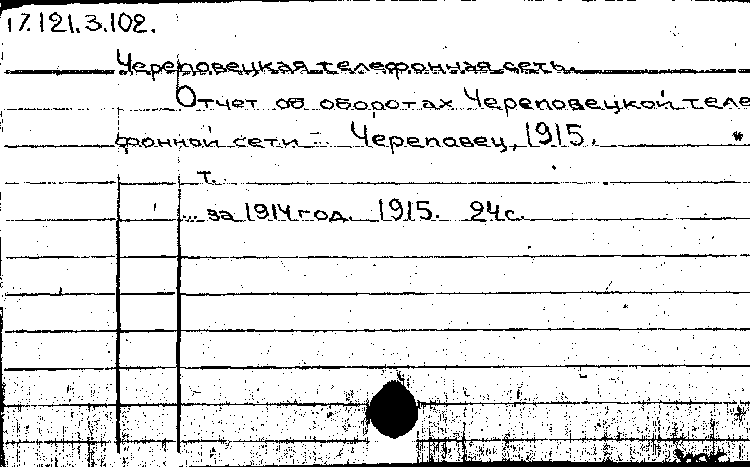 17.121.3.102.
Череповецкая телефонная сеть.
Отчет об оборотах Череповецкой теле
фонной сети – Череповец, 1915.
т.
... за 1914 год. 1915. 24 с.